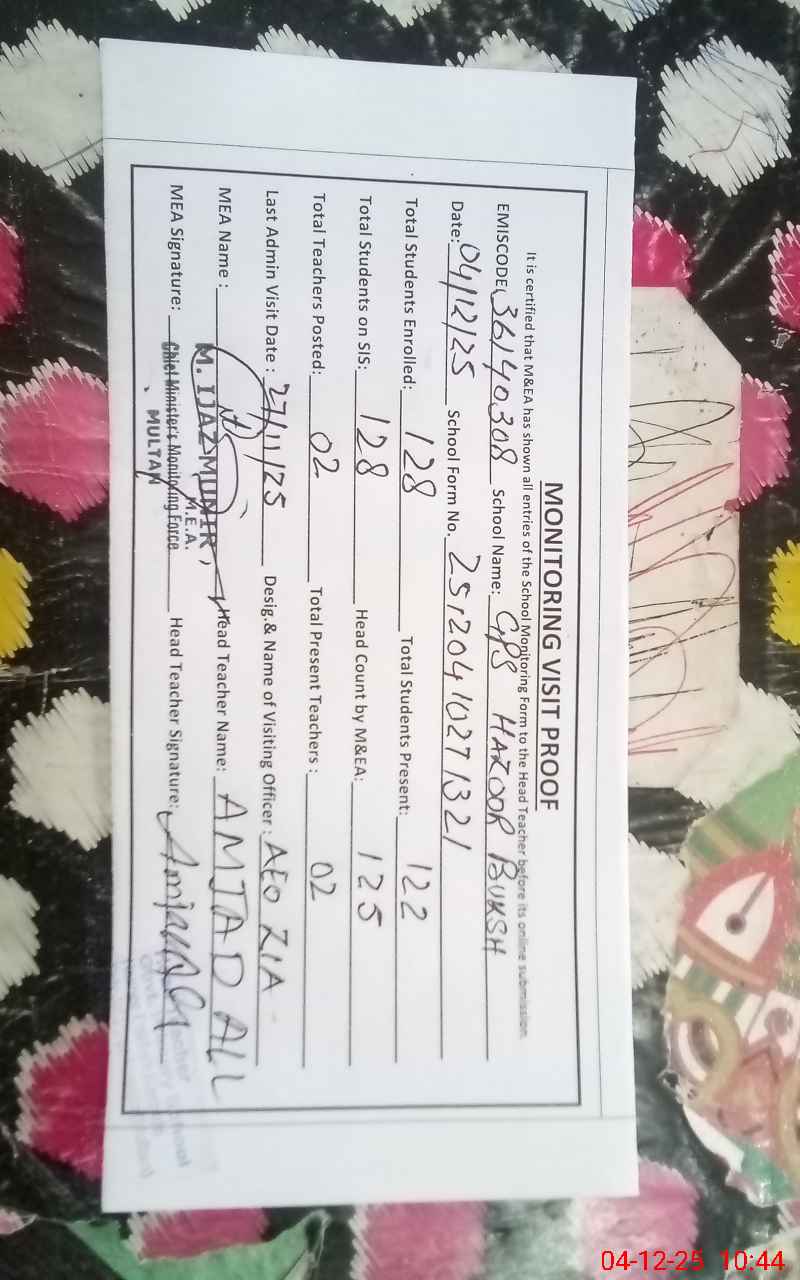 MONITORING VISIT PROOF
It is certified that M&EA has shown all entries of the School Monitoring Form to the Head Teacher before its online submission.
EMISCODE 36140308 School Name: GPS HAZOOR BUKSH
Date: 04/12/25 School Form No. 25120410271321
Total Students Enrolled: 128 Total Students Present: 122
Total Students on SIS: 128 Head Count by M&EA: 125
Total Teachers Posted: 02 Total Present Teachers : 02
Last Admin Visit Date : 27/11/25 Desig.& Name of Visiting Officer : AEO ZIA
MEA Name : Head Teacher Name: AMJAD ALI
M. IJAZ MUNIR,
M.E.A.
MEA Signature: Chief Minister's Monitoring Force Head Teacher Signature: Amjad Ali
MULTAN
04-12-25 10:44